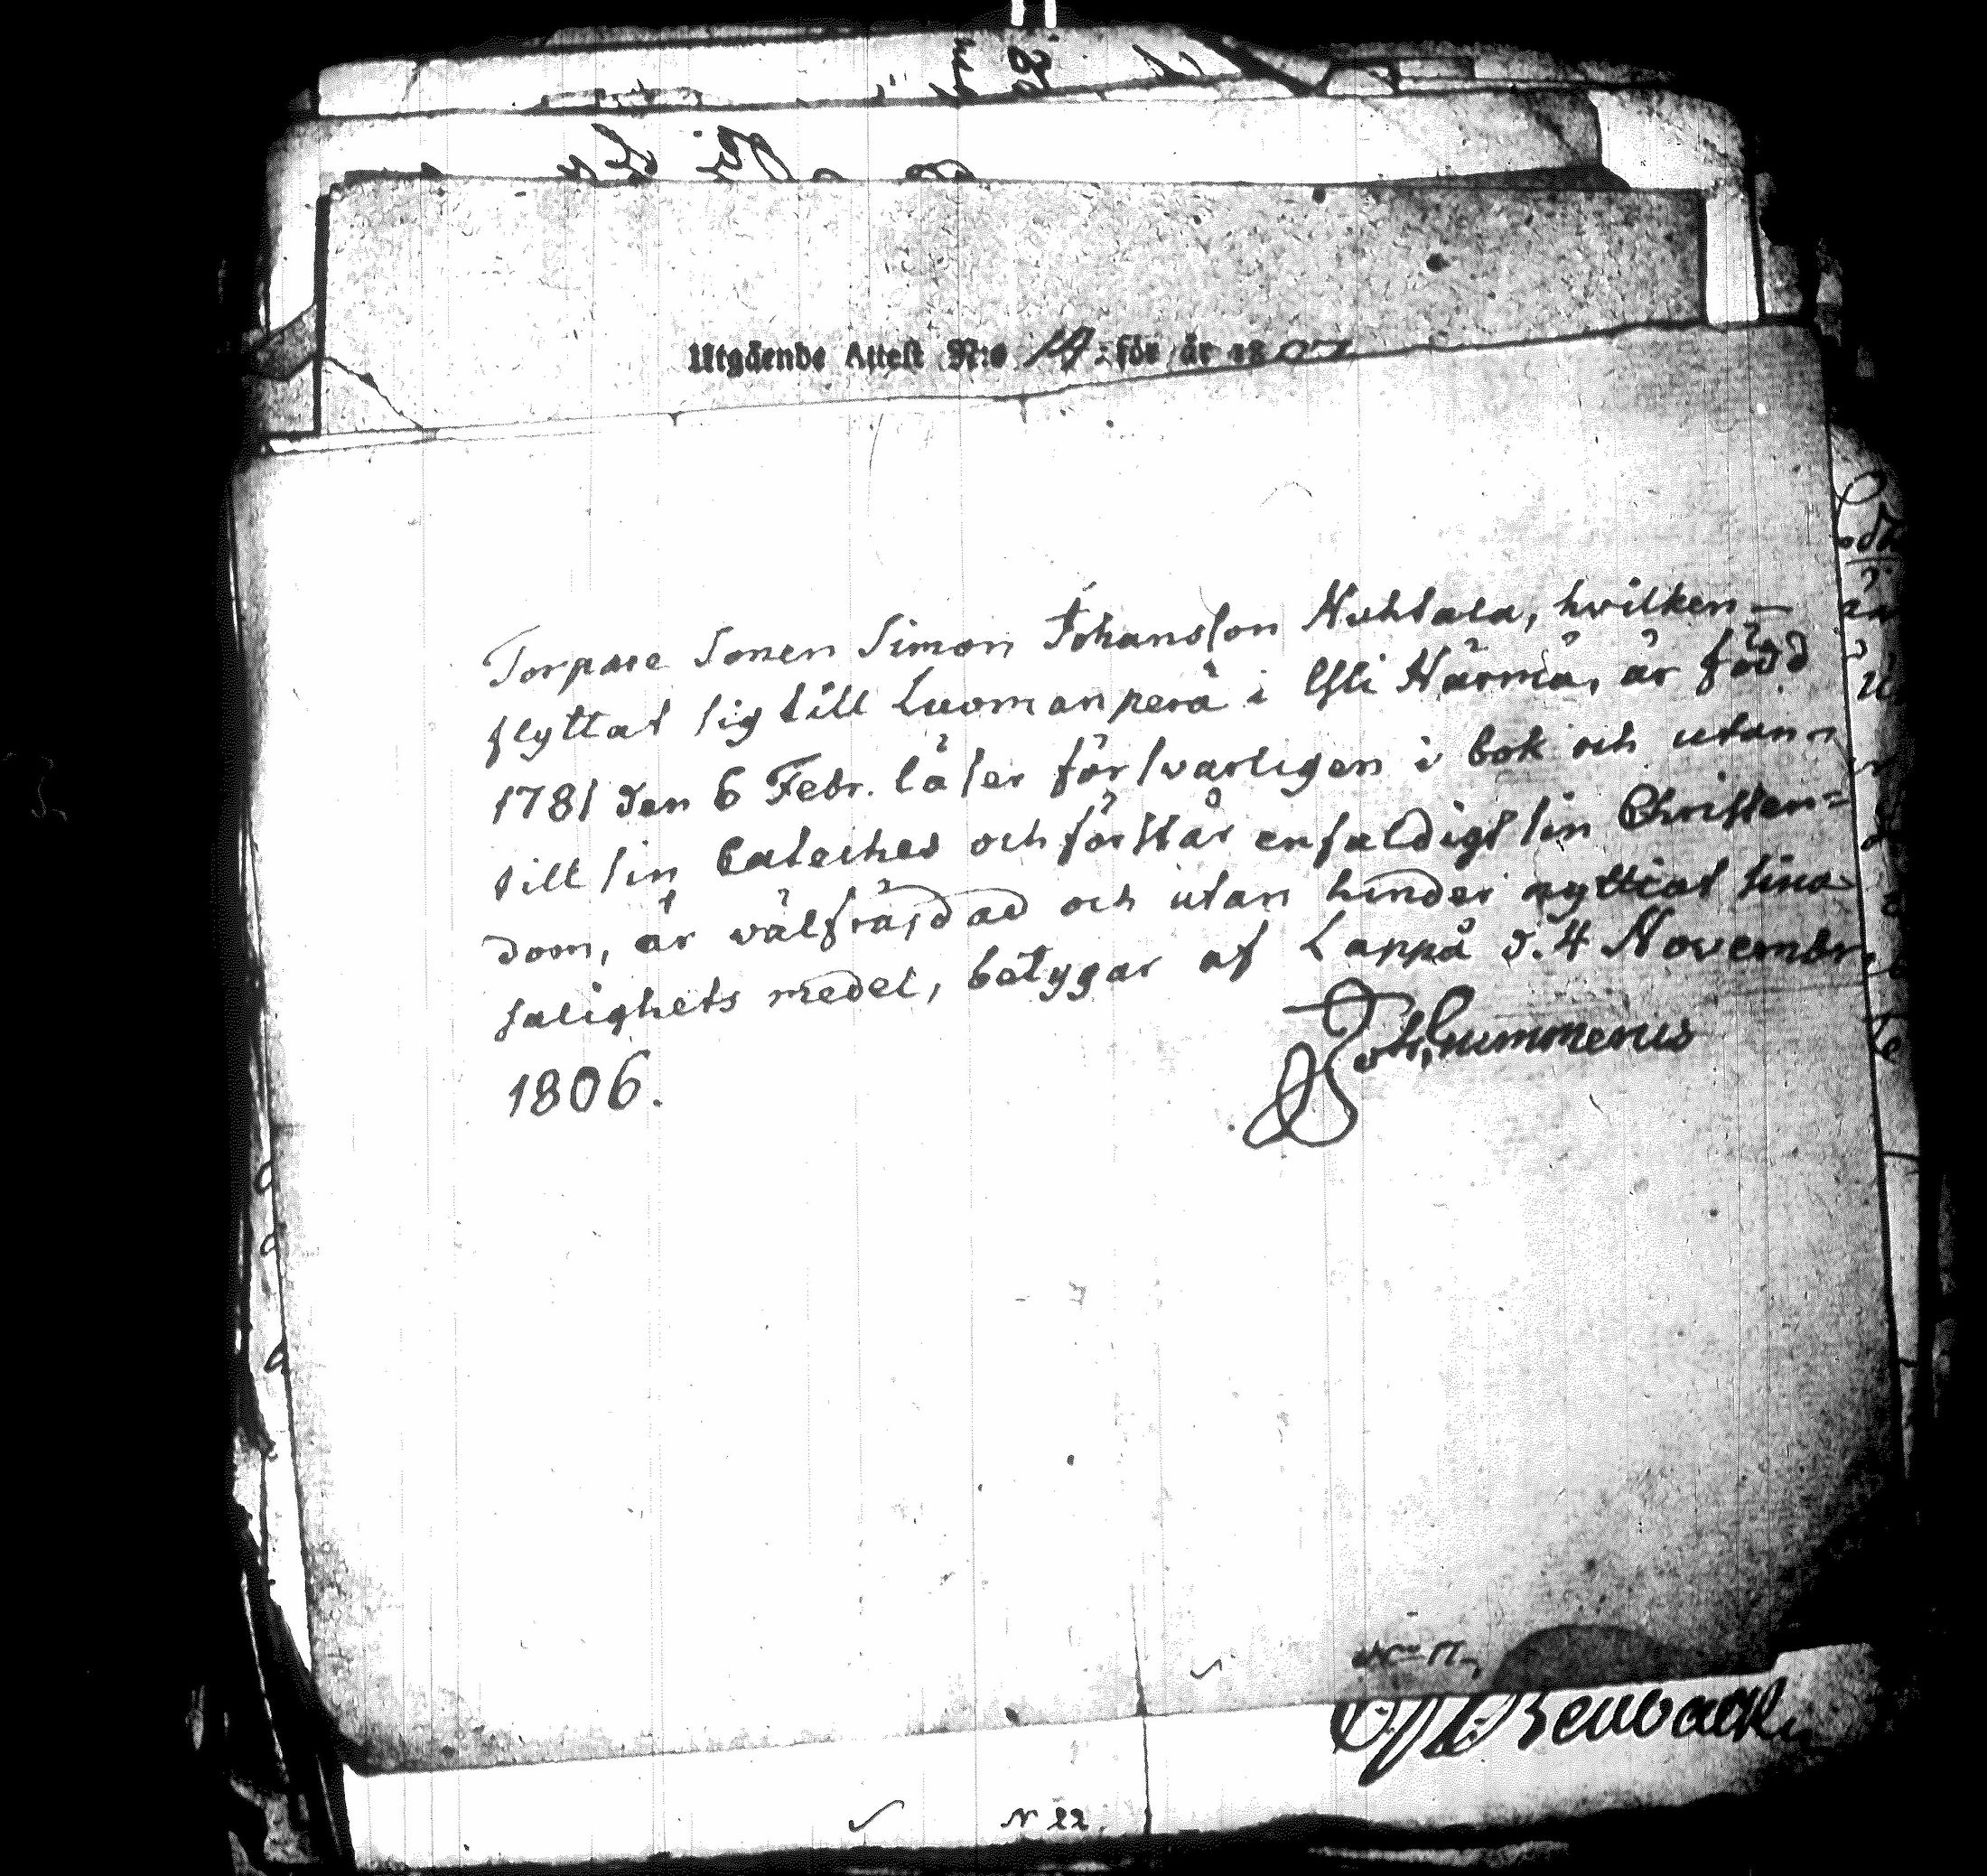 Utgående Attest N:o 14. för år 18
Torpare Sonen Simon Johansson Nuhtala, hvilken
flyttat sig till Luomanperä i Ysti Härmä, är född
1781 den 6 Febr. läser försvarligen i bok och utan
till sin Cateches och förstår enfaldigt sin Christen=
dom, är wälfräjdad och utan hinder nyttiat sina
salighets medel, betygar af Lappå d. 4 Novembr.
1806.
Joh. Gummerus
N 22.